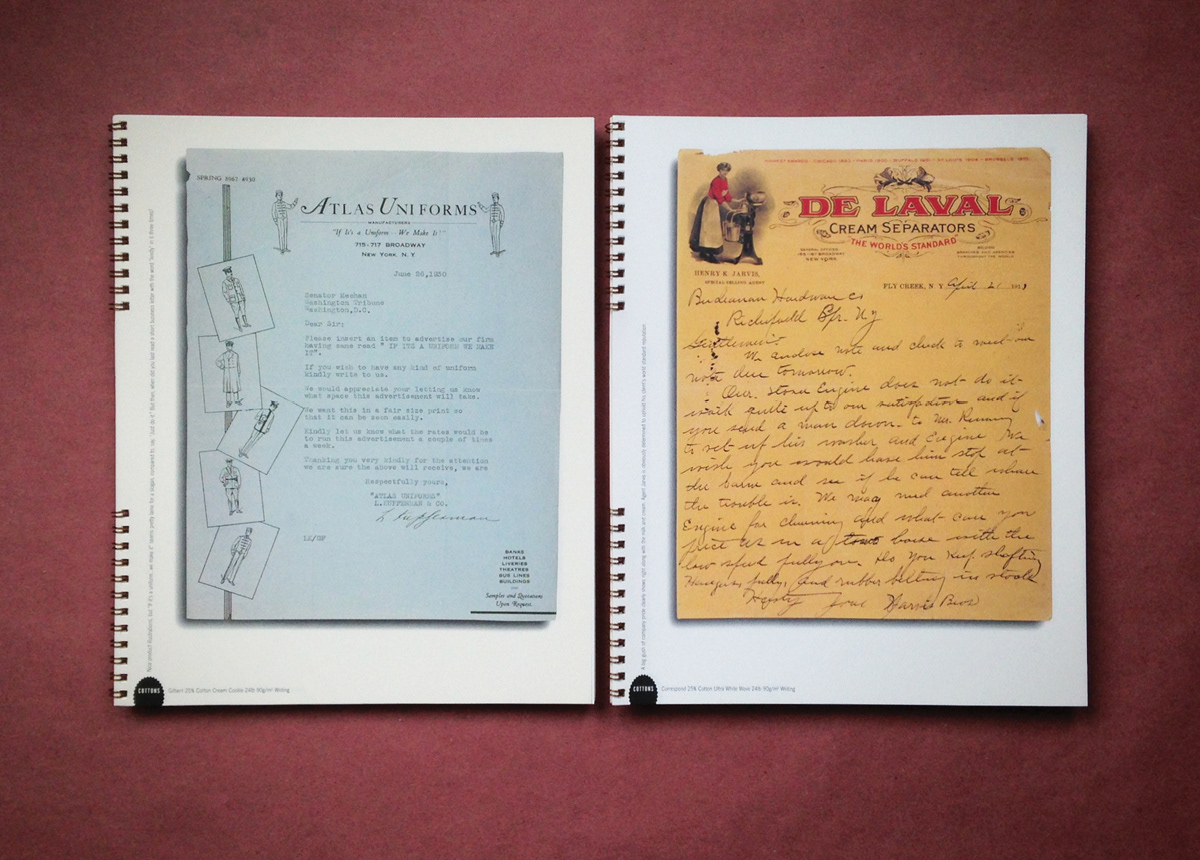 SPRING 3062-4930
ATLAS UNIFORMS
MANUFACTURERS
"If It's a Uniform - We Make It!"
715-717 BROADWAY
NEW YORK, N. Y
June 28,1930
Senator Meehan
Washington Tribune
Washington,D.C.
Dear Sir:
Please insert an item to advertise our firm
having same read " IF ITS A UNIFORM WE MAKE
IT".
If you wish to have any kind of uniform
kindly write to us.
We would appreciate your letting us know
what space this advertisement will take.
We want this in a fair size print so
that it can be seen easily.
Kindly let us know what the rates would be
to run this advertisement a couple of times
a week.
Thanking you very kindly for the attention
we are sure the above will receive, we are
Respectfully yours,
"ATLAS UNIFORMS"
L.KUPFERMAN & CO.
L Kupferman
LK/GP
BANKS
HOTELS
LIVERIES
THEATRES
BUS LINES
BUILDINGS
Samples and Quotations
Upon Request.
COTTONS
25% Cotton Cream 24lb 90g/m² Writing
DE LAVAL
CREAM SEPARATORS
"THE WORLD'S STANDARD"
GENERAL OFFICES
165-167 BROADWAY
NEW YORK
HENRY E. JARVIS,
SPECIAL SELLING AGENT
FLY CREEK, N. Y. April 21 191
Buchanan Hardware Co
Richfield Spr. Ny
Gentlemen:
We enclose note and check to meet our
note due tomorrow.
Our Stone Engine does not do it
work quite up to our satisfaction and if
you send a man down to Mr.
to set up his washer and Engine We
wish you would have him stop at
the barn and see if he can tell where
the trouble is. We may need another
Engine for cleaning and what can you
us in a horse with the
low speed pulley on. Do you Keep shafting
Hangers, pulleys, and rubber belting in stock
Jarvis Bros
COTTONS
Correspond 25% Cotton Ultra White Wove 24lb 90g/m² Writing